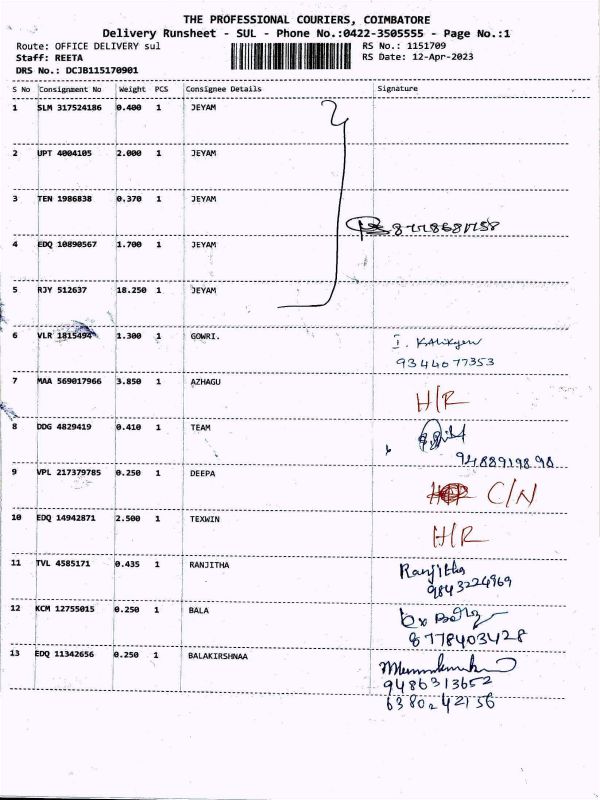 THE PROFESSIONAL COURIERS, COIMBATORE
Delivery Runsheet - SUL - Phone No.:0422-3505555 - Page No.:1
Route: OFFICE DELIVERY sul RS No.: 1151709
Staff: REETA RS Date: 12-Apr-2023
DRS No.: DCJB115170901
S No Consignment No Weight PCS Consignee Details Signature
1 SLM 317524186 0.400 1 JEYAM
2 UPT 4004105 2.000 1 JEYAM
3 TEN 1986838 0.370 1 JEYAM
4 EDQ 10890567 1.700 1 JEYAM
5 RJY 512637 18.250 1 JEYAM
6 VLR 1815494 1.300 1 GOWRI.
9344077353
7 MAA 569017966 3.850 1 AZHAGU
H/R
8 DDG 4829419 0.410 1 TEAM
9488919898
9 VPL 217379785 0.250 1 DEEPA
C/N
10 EDQ 14942871 2.500 1 TEXWIN
H/R
11 TVL 4585171 0.435 1 RANJITHA
Ranjitha
9843224969
12 KCM 12755015 0.250 1 BALA
8778403428
13 EDQ 11342656 0.250 1 BALAKIRSHNAA
9486313652
6380242156